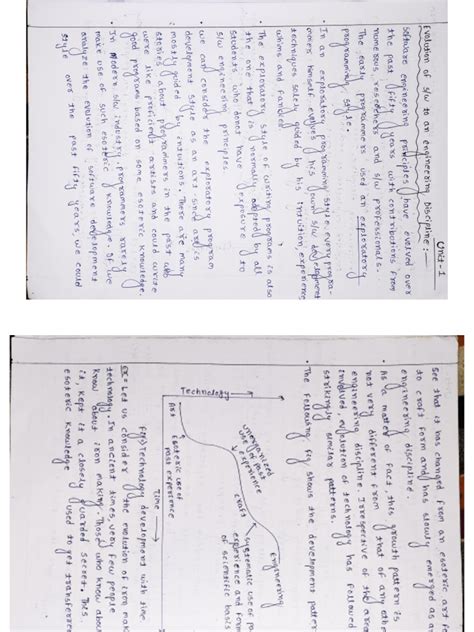 Unit-1
Evolution of s/w to an engineering Discipline:-
Software engineering principles have evolved over
the past fifty years with contributions from
numerous researchers and s/w professionals.
The early programmers used an exploratory
programming style.
In an exploratory programming style every progra-
mmer himself evolves his own s/w development
techniques solely guided by his intuition, experience
whims and fancies
The exploratory style of writing programs is also
the one that is normally adopted by all
students who donot have exposure to
s/w engineering principles.
we can consider the exploratory program
development style as an art since art is
mostly guided by intuitions. There are many
stories about programmers in the past who
were like proficient artists and could write
good programs based on some esoteric knowledge.
In modern s/w industry, programmers rarely
make use of such esoteric knowledge. If we
analyze the evolution of software development
style over the past fifty years, we could
see that it has changed from an esoteric art
to craft form and has slowly emerged as
engineering discipline.
As a matter of fact, this growth pattern is
not very different from that of any
engineering discipline Irrespective of the area
involved, evolution of technology has followed
strikingly similar patterns.
The following fig shows the development
Technology
Art
Esoteric use of
past experience
Unorganized
use of past
experience
craft
systematic use of
experience and
of scientific basis
Engineering
Time
Fig: Technology development with time.
Ex:- Let us consider the evolution of iron
technology. In ancient times, very few people
know about iron making. Those who know
it, kept it a closely guarded secret. This
esoteric knowledge used to get